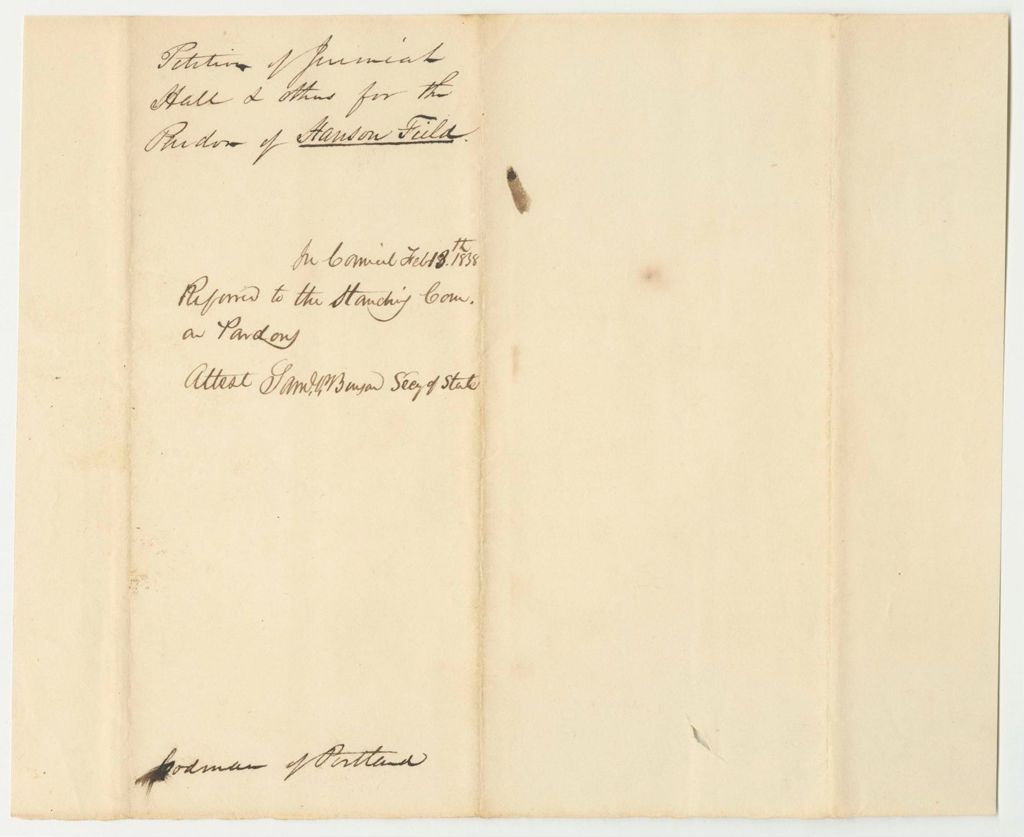 Petition of Jeremiah
Hall & others for the
Pardon of Hanson Field.
In Council Feb 13th 1838
Referred to the Standing Com.
on Pardons
Attest Saml. P. Benson Secy of State
Codman of Portland